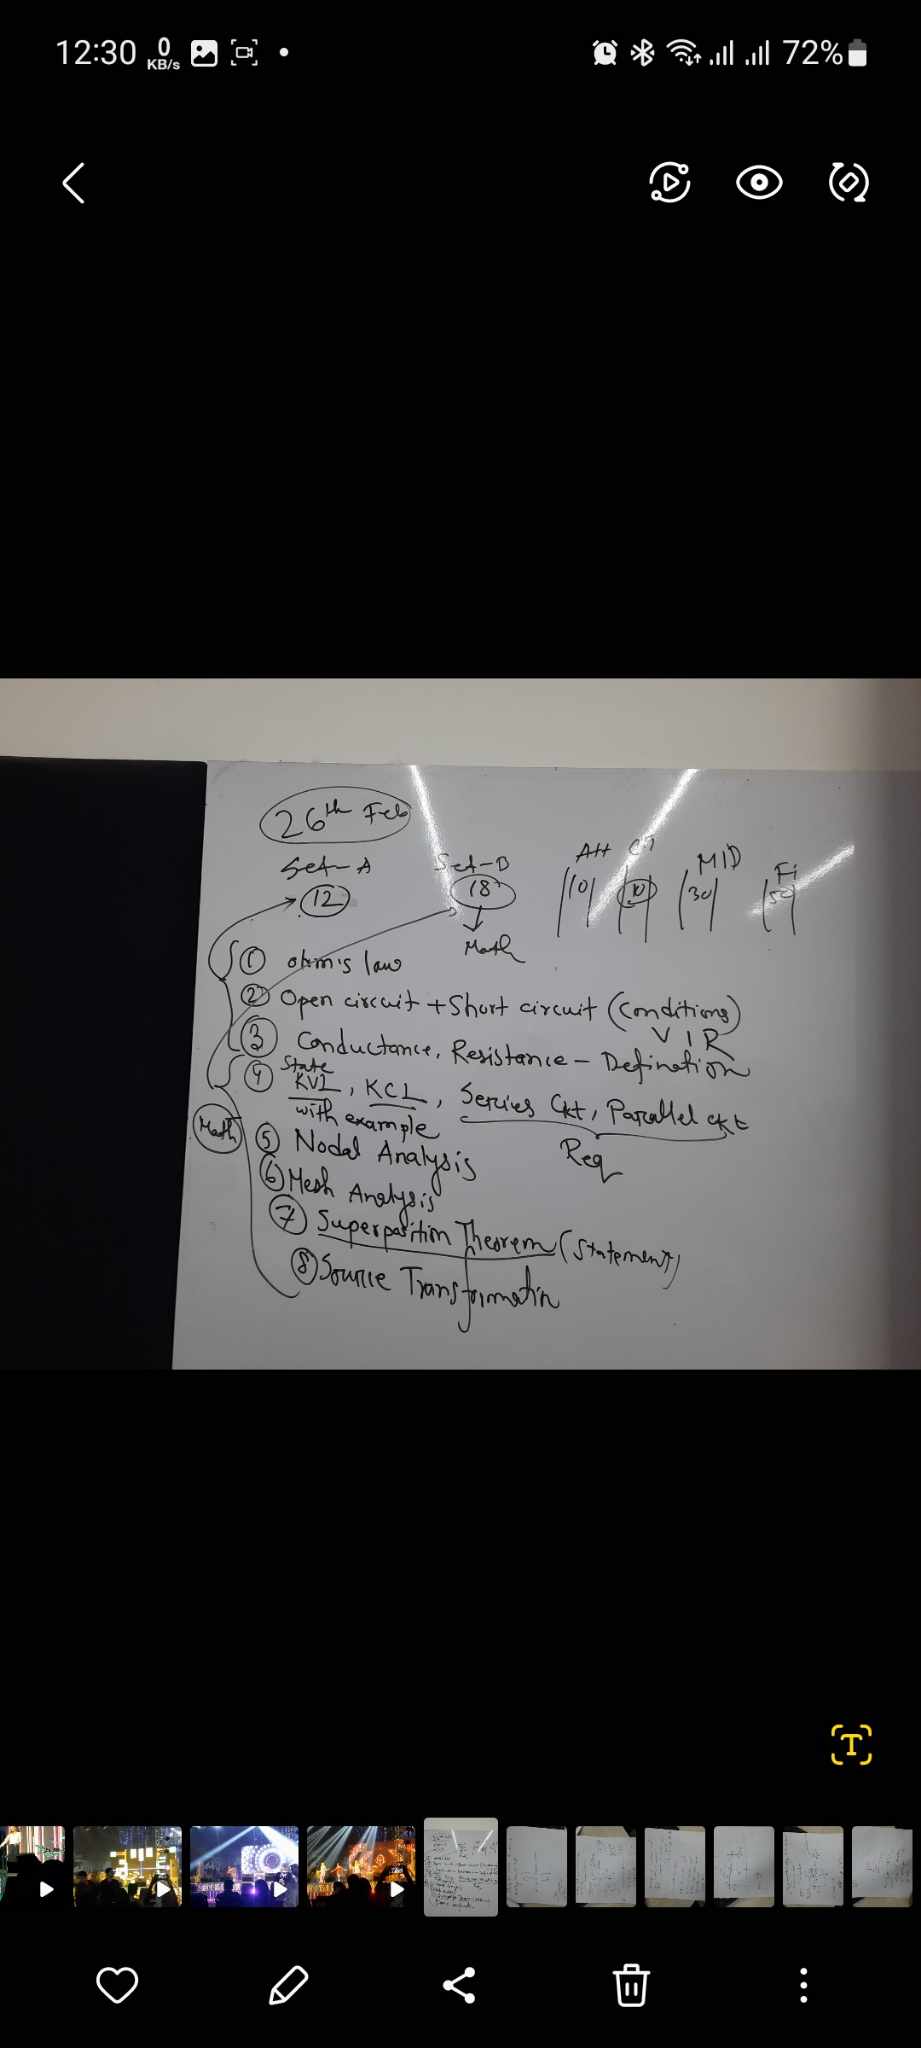 12:30 0 KB/s 72%
26th Feb
Set-A Set-B Att CT MID Fi
12 18 10 10 30 50
Math
1 ohm's law
2 Open circuit + Short circuit (Conditions)
V I R
3 Conductance, Resistance - Defination
State
4 KVL, KCL, Series Ckt, Parallel ckt
with example
Req
Math
5 Nodal Analysis
6 Mesh Analysis
7 Superposition Theorem (Statement)
8 Source Transformation
T